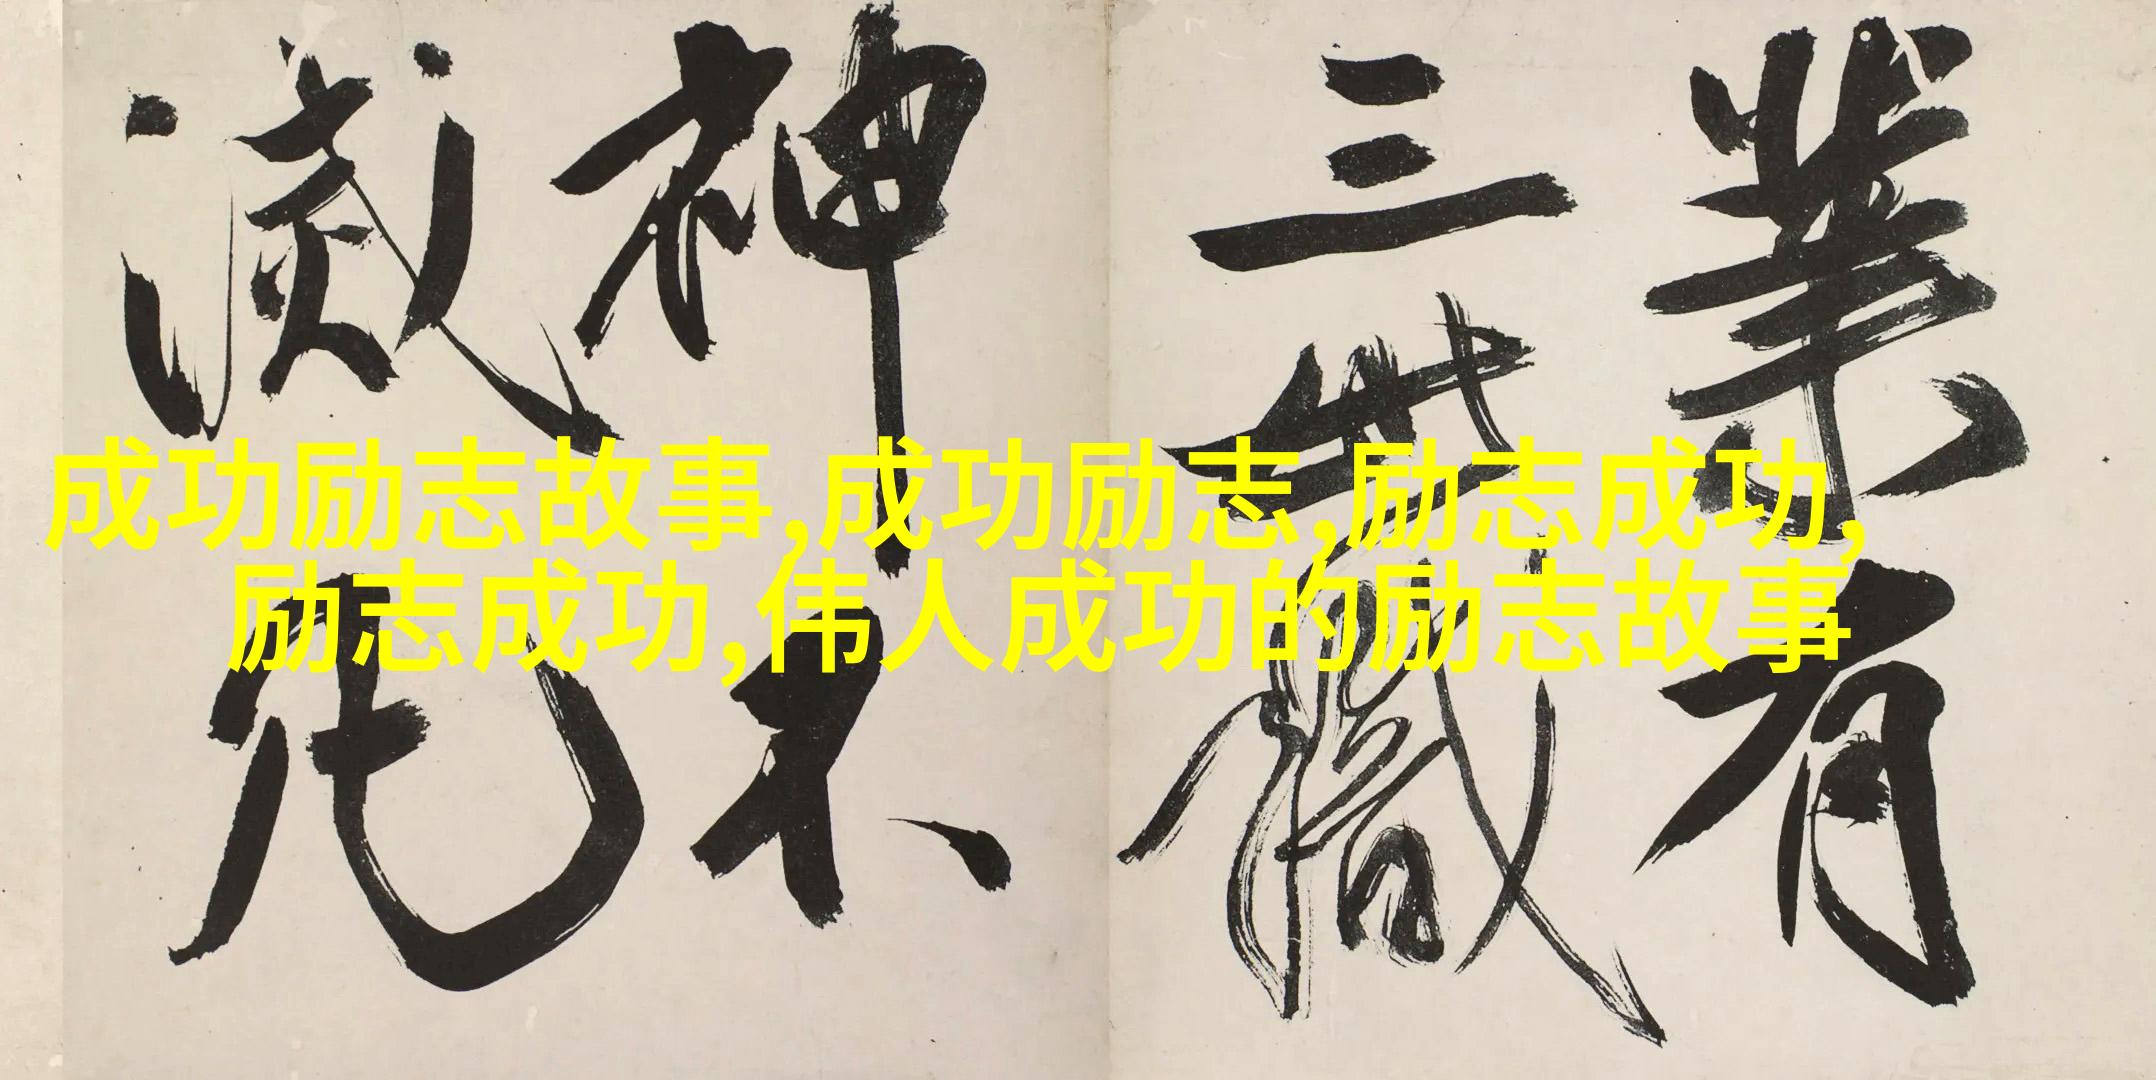 成功励志故事,成功励志,励志成功,
励志成功,伟人成功的励志故事
業有
三世識
神不
滅凡